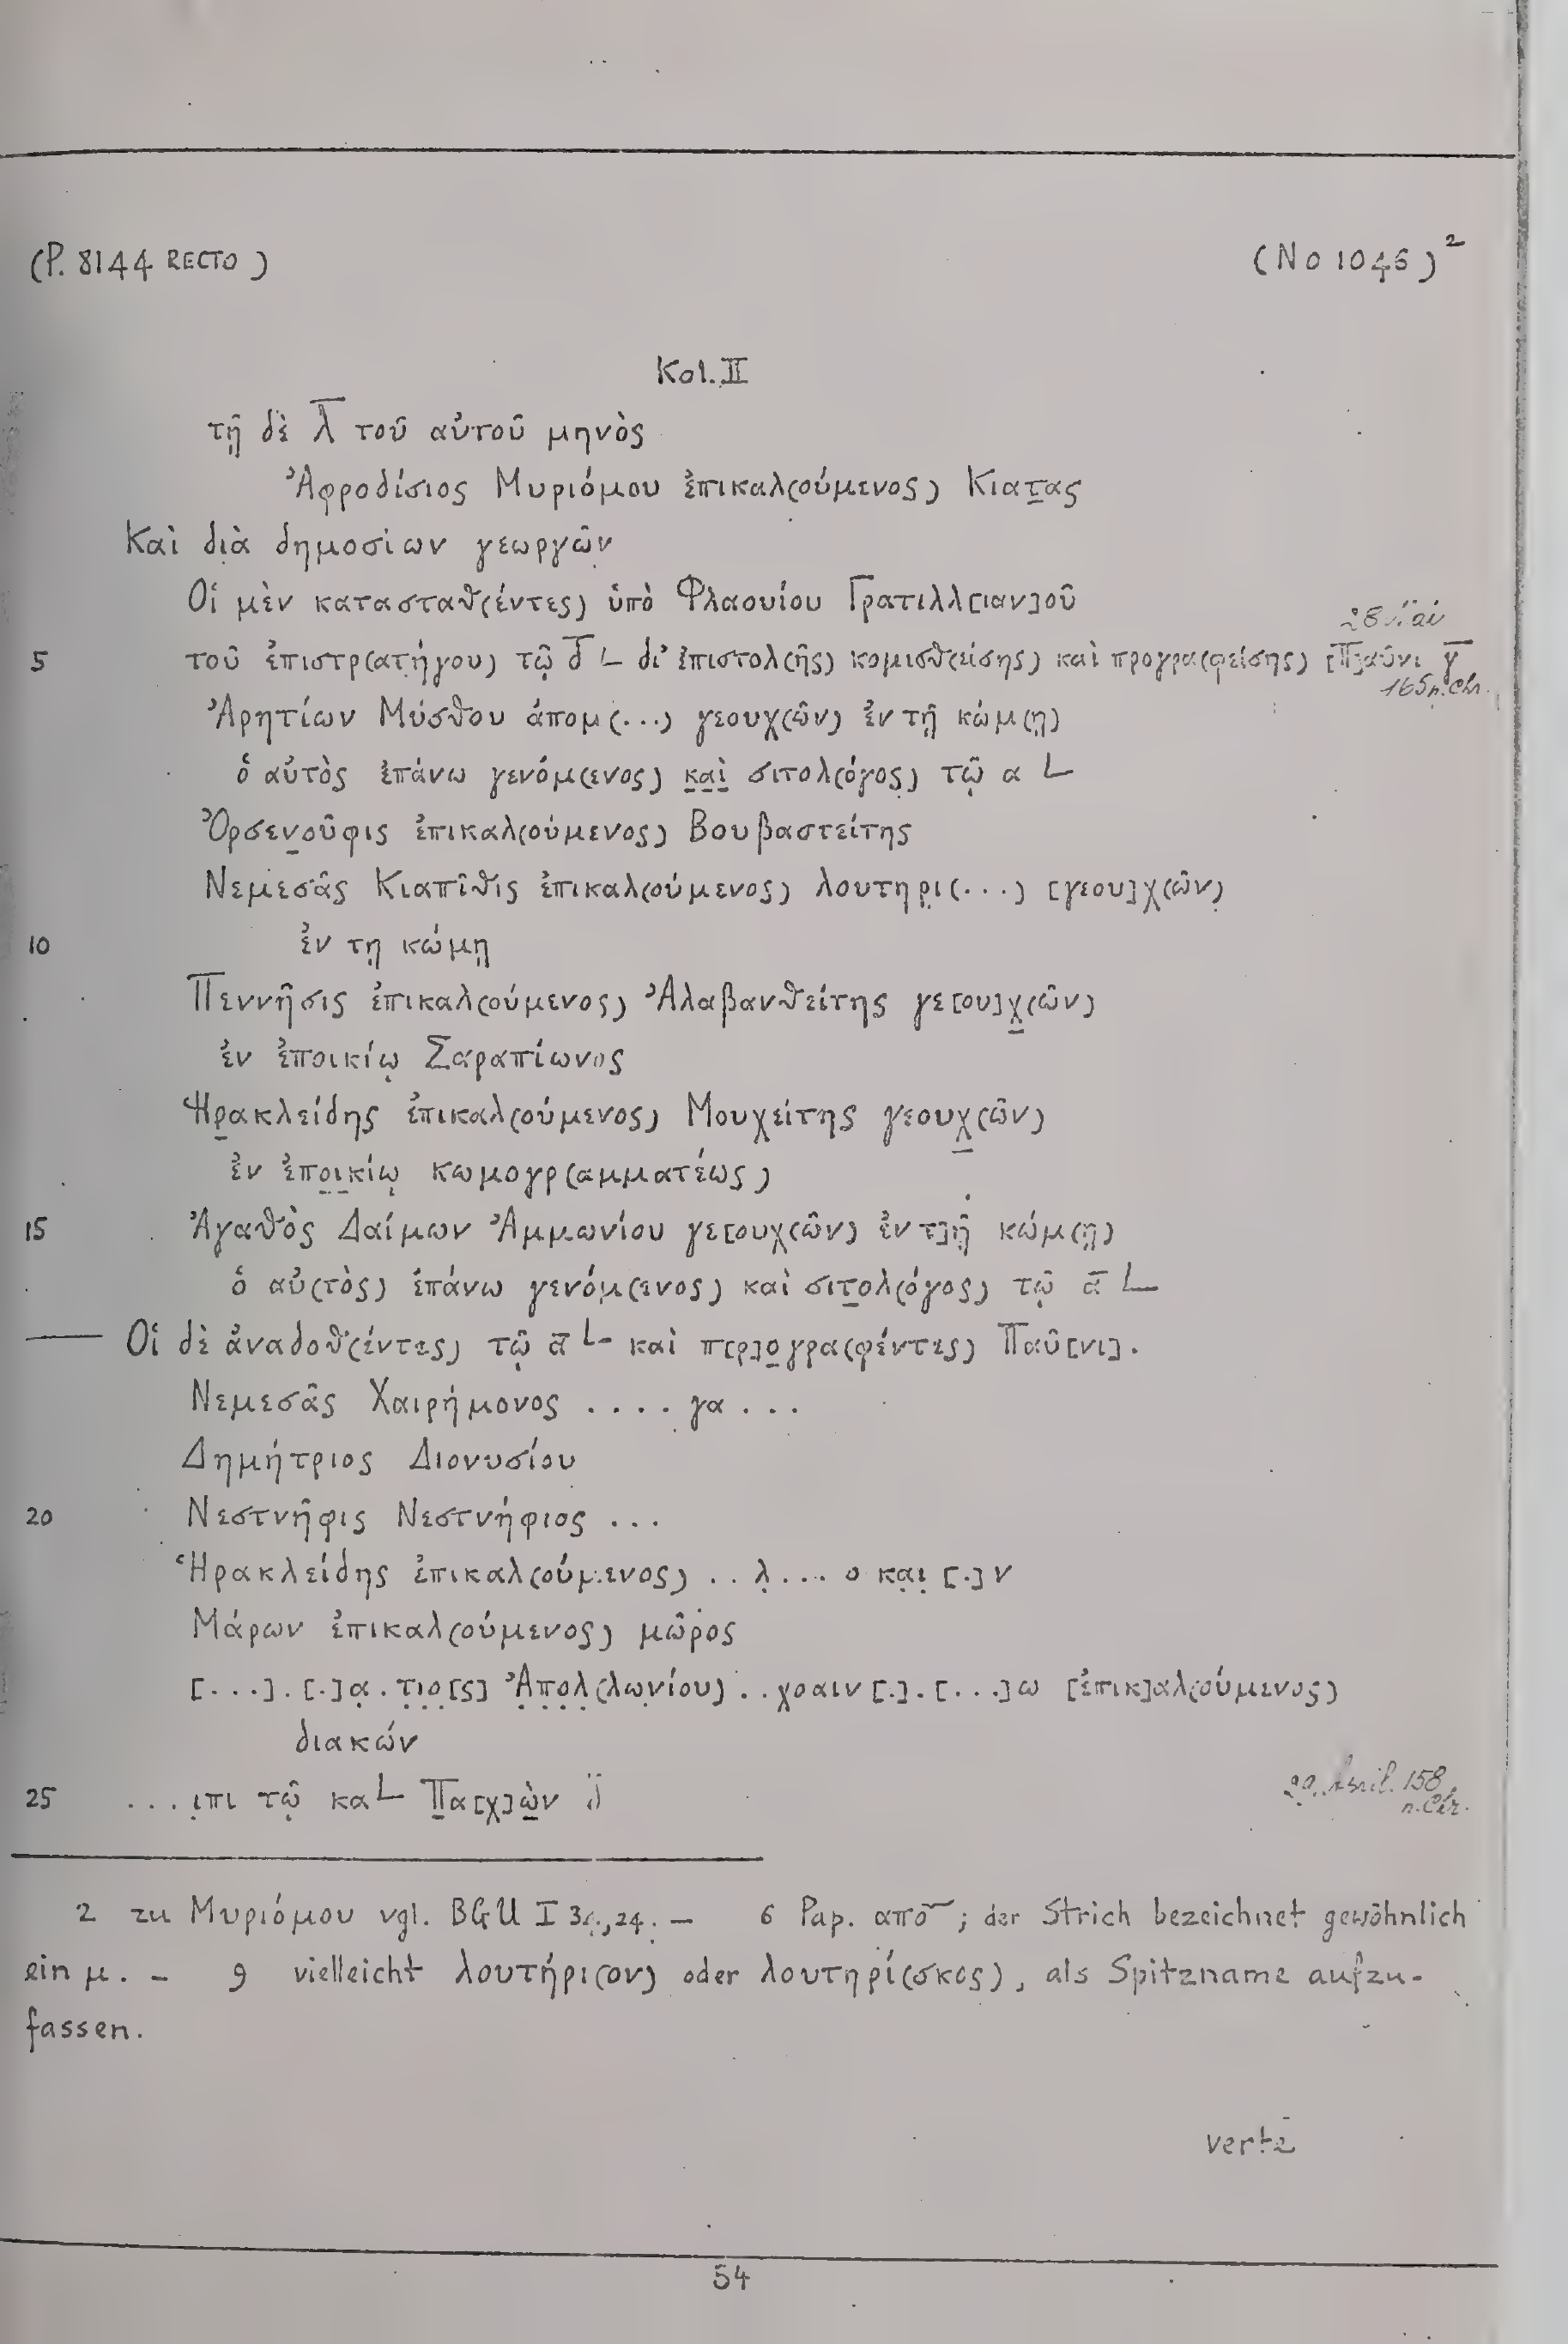 (P. 8144 RECTO)
(No 1046)²
Kol. II
τῇ δὲ λ̅ τοῦ αὐτοῦ μηνὸς
Ἀφροδίσιος Μυριόμου ἐπικαλ(ούμενος) Κιατ̲ας
Καὶ διὰ δημοσίων γεωργῶν
Οἱ μὲν κατασταθ(έντες) ὑπὸ Φλαουίου Γρατιλλ[ιαν]οῦ
28 Mai
5 τοῦ ἐπιστρ(ατήγου) τῷ δ̅ L δι' ἐπιστολ(ῆς) κομισθ(είσης) καὶ προγρα(φείσης) [Π]αῦνι γ̅
165 n. Chr.
Ἀρητίων Μύσθου ἀπομ(...) γεουχ(ῶν) ἐν τῇ κώμ(ῃ)
ὁ αὐτὸς ἐπάνω γενόμ(ενος) κ̲α̲ὶ̲ σιτολ(όγος) τῷ α L
Ὀρσεν̲οῦφις ἐπικαλ(ούμενος) Βουβαστείτης
Νεμεσᾶς Κιαπῖθις ἐπικαλ(ούμενος) λουτηρ̣ι(...) [γεου]χ(ῶν)
10 ἐν τῃ κώμῃ
Πεννῆσις ἐπικαλ(ούμενος) Ἀλαβανθείτης γε[ου]χ̲(ῶν)
ἐν ἐποικίῳ Σαραπίωνος
Ἡρ̲ακλείδης ἐπικαλ(ούμενος) Μουχείτης γεουχ̲(ῶν)
ἐν ἐπο̲ι̲κίῳ κωμογρ(αμματέως)
15 Ἀγαθὸς Δαίμων Ἀμμωνίου γε[ουχ(ῶν) ἐν τ]ῇ κώμ(ῃ)
ὁ αὐ(τὸς) ἐπάνω γενόμ(ενος) καὶ σιτ̲ολ(όγος) τῷ α̅ L
Οἱ δὲ ἀναδοθ(έντες) τῷ α̅ L καὶ π[ρ]ο̲γρα(φέντες) Παῦ[νι].
Νεμεσᾶς Χαιρήμονος .... γα ...
Δημήτριος Διονυσίου
20 Νεστνῆφις Νεστνήφιος ...
Ἡρακλείδης ἐπικαλ(ούμενος) .. λ̣ ... ο κα̣ι̣ [.] ν
Μάρων ἐπικαλ(ούμενος) μῶρος
[...]. [.]α̣. τ̣ι̣ο̣[ς] Ἀ̣π̣ο̣λ̣(λωνίου) .. χοαιν[.]. [...]ω [ἐπικ]αλ(ούμενος)
διακών
29. April. 158
25 ... ι̣πι τῷ κα L Π̲α[χ]ὼ̲ν
n. Chr.
2 zu Μυριόμου vgl. BGU I ,24. – 6 Pap. απο͂ ; der Strich bezeichnet gewöhnlich
ein μ. – 9 vielleicht λουτήρι(ον) oder λουτηρί(σκος), als Spitzname aufzu-
fassen.
verte
54